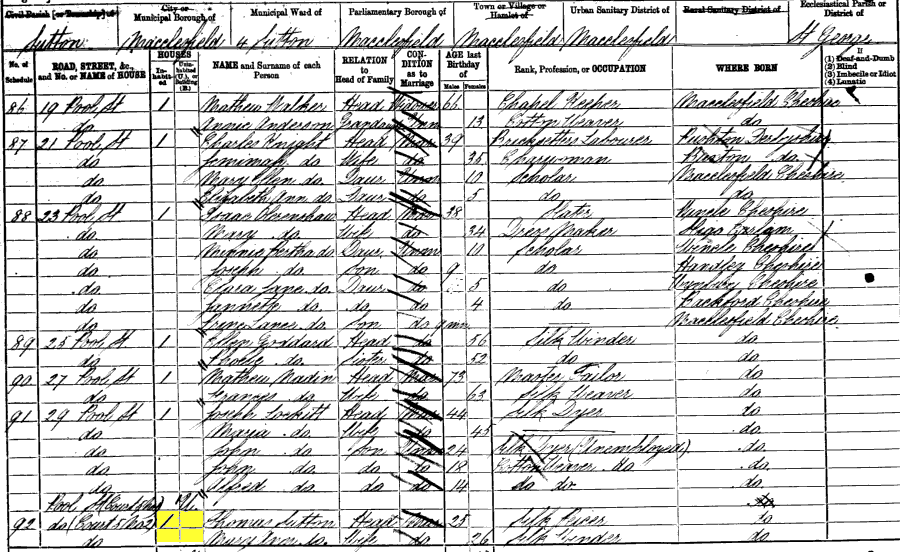 Civil Parish [or Township] of
City or Municipal Borough of
Municipal Ward of
Parliamentary Borough of
Town or Village or Hamlet of
Urban Sanitary District of
Rural Sanitary District of
Ecclesiastical Parish or District of
Sutton Macclesfield 4 Sutton Macclesfield Macclesfield Macclesfield St George
No. of Schedule
ROAD, STREET, &c., and No. or NAME of HOUSE
HOUSES
Inhabited
Uninhabited (U.), or Building (B.)
NAME and Surname of each Person
RELATION to Head of Family
CONDITION as to Marriage
AGE last Birthday of
Males Females
Rank, Profession, or OCCUPATION
WHERE BORN
If
(1) Deaf-and-Dumb
(2) Blind
(3) Imbecile or Idiot
(4) Lunatic
86 19 Pool St 1 Mathew Walker Head Widower 66 Chapel Keeper Macclesfield Cheshire
do Annie Anderson 13 Cotton Weaver do
87 21 Pool St 1 Charles Knight Head Mar 39 Labourer
do Jemimah do Wife do 35 Charwoman Buxton do
do Mary Ellen do Daur 10 Scholar Macclesfield Cheshire
do Elizabeth Ann do Daur do 5 do do
88 23 Pool St 1 Isaac Head Mar 38 Slater Wincle Cheshire
do Mary do Wife do 34 Dress Maker
do Minnie Bertha do Daur 10 Scholar Wincle Cheshire
do Joseph do Son do 9 do Cheshire
do Clara Jane do Daur 5 do Cheshire
do do do do 4 do Cheshire
do do Son do 9 mo Macclesfield Cheshire
89 25 Pool St 1 Ellen Goddard Head do 56 Silk Winder do
do Phoebe do Sister do 52 do do
90 27 Pool St 1 Mathew Madin Head Mar 73 Master Tailor do
do Frances do Wife do 63 Silk Weaver do
91 29 Pool St 1 Joseph Lockitt Head Mar 44 Silk Dyer do
do Maria do Wife do 45 do
do John do Son 24 Silk Dyer (Unemployed) do
do John do do do 18 Cotton Weaver do do
do Alfred do do do 14 do do do
Pool St
92 do (Court 5 No 2) 1 Thomas Sutton Head Mar 25 Silk Piecer do
do Mary do Wife do 26 Silk Winder do